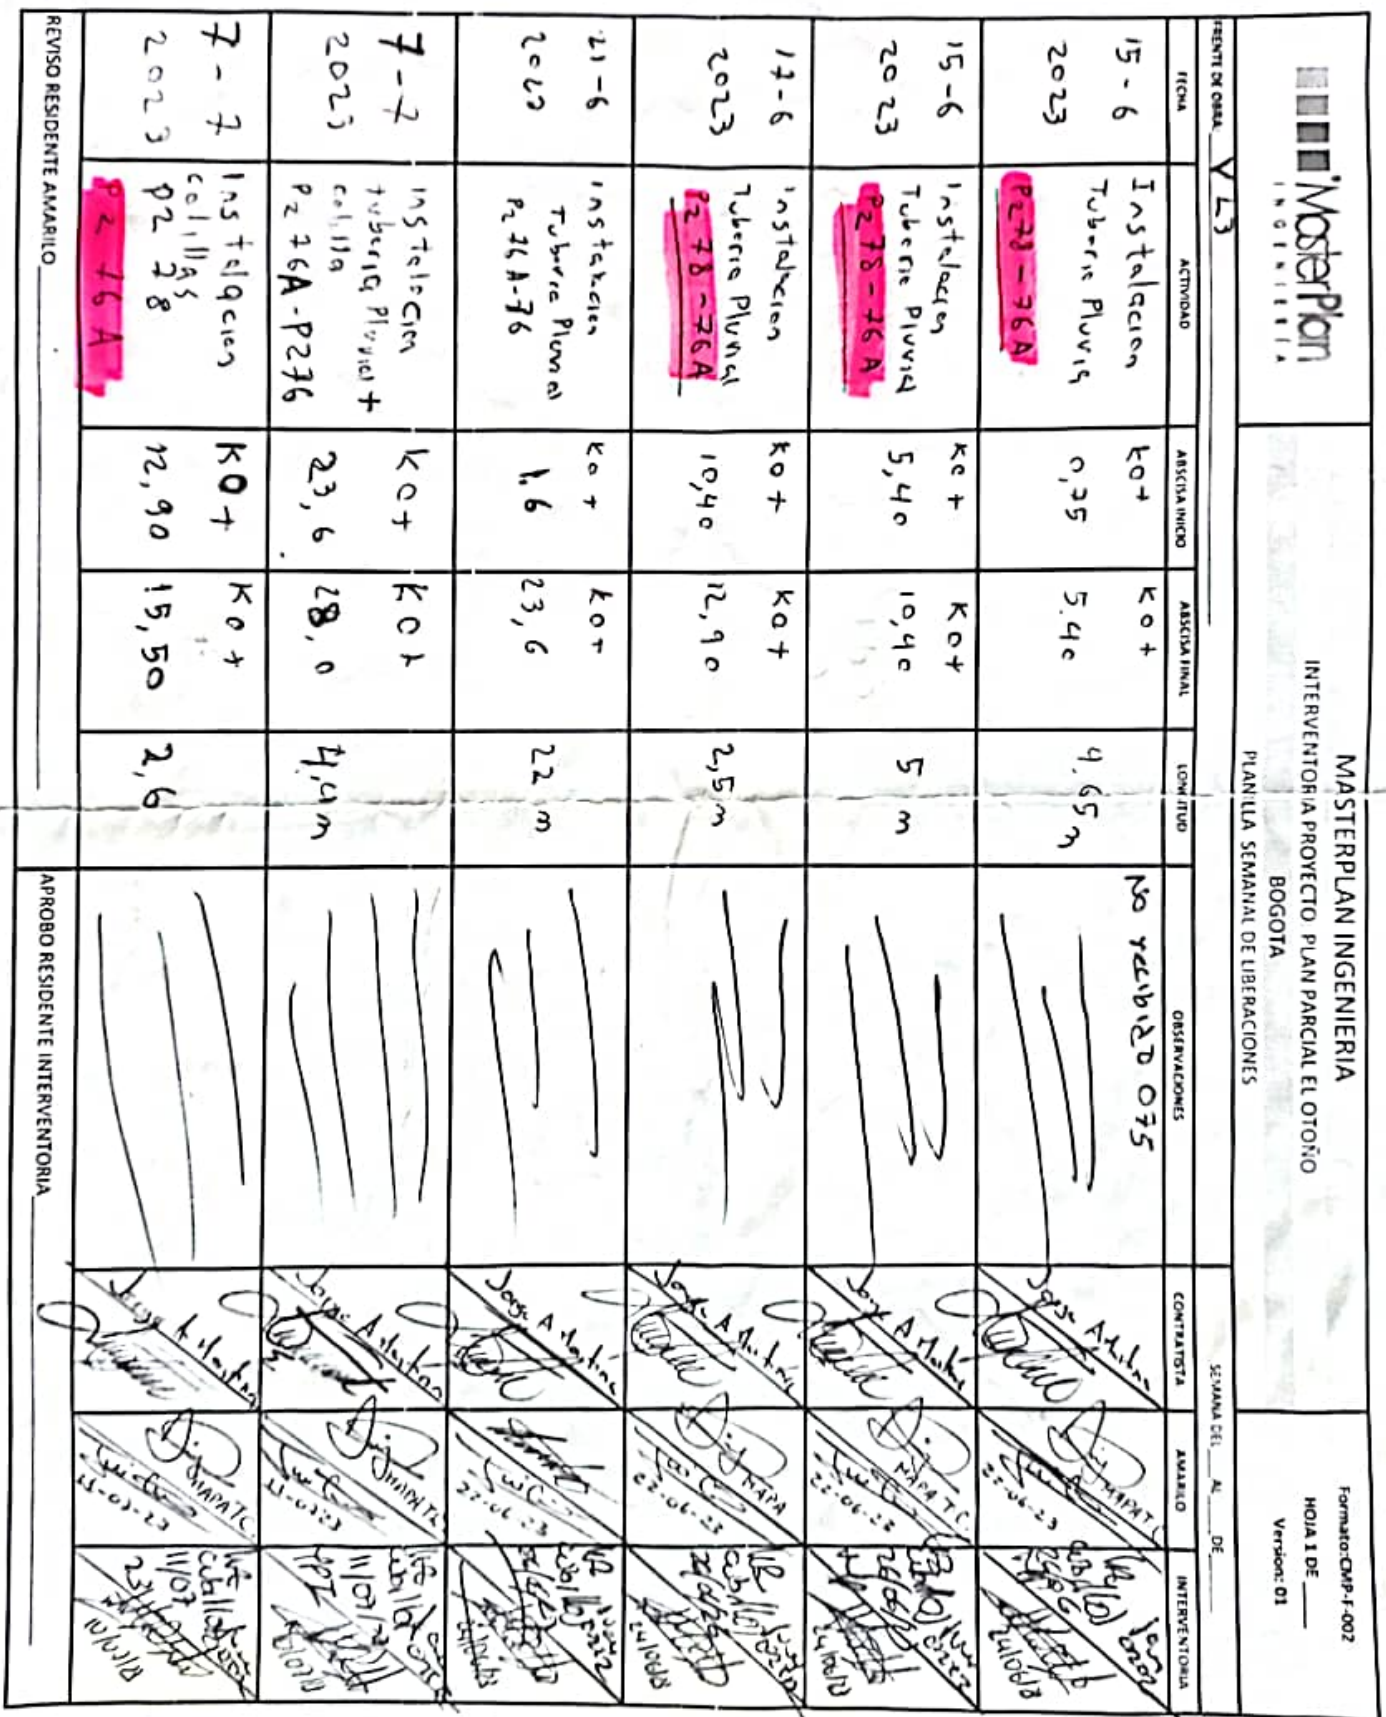 MasterPlan
INGENIERIA
MASTERPLAN INGENIERIA
INTERVENTORIA PROYECTO: PLAN PARCIAL EL OTOÑO
BOGOTA
PLANILLA SEMANAL DE LIBERACIONES
Formato:CMP-F-002
HOJA 1 DE
Version: 01
FRENTE DE OBRA: VL3
SEMANA DEL AL DE
FECHA ACTIVIDAD ABSCISA INICIO ABSCISA FINAL LONGITUD OBSERVACIONES CONTRATISTA AMARILO INTERVENTORIA
15-6
2023
Instalacion
Tuberia Pluvia
Pz78-76A
K0+
0,75
K0+
5.40
4.65m
No recibido 075
22-06-23
24/06/23
15-6
2023
Instalacion
Tuberia Pluvial
Pz78-76A
K0+
5,40
K0+
10,40
5 m
22-06-23
24/06/23
17-6
2023
Instalacion
Tuberia Pluvial
Pz 78-76A
K0+
10,40
K0+
12,90
2,5m
22-06-23
24/06/23
21-6
2023
Instalacion
Tuberia Pluvial
Pz 76A-76
K0+
1.6
K0+
23,6
22 m
22-06-23
7-7
2023
Instalacion
tuberia Pluvial +
colilla
Pz 76A-Pz76
K0+
23,6
K0+
28,0
4,4m
11/07
7-7
2023
Instalacion
colillas
Pz 78
Pz 76A
K0+
12,90
K0+
15,50
2,6
11-07-23
11/07
REVISO RESIDENTE AMARILO
APROBO RESIDENTE INTERVENTORIA